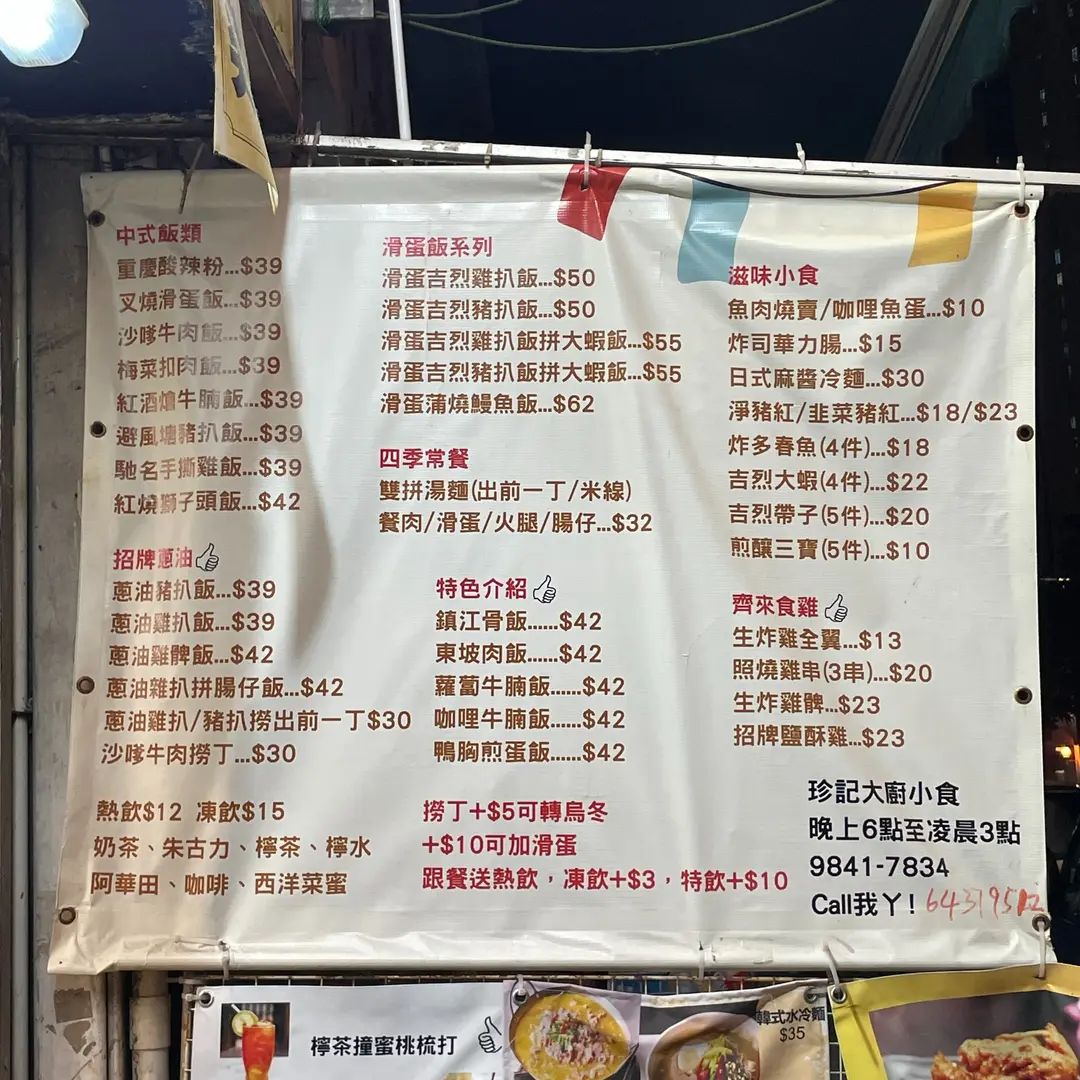 中式飯類
重慶酸辣粉...$39
叉燒滑蛋飯...$39
沙嗲牛肉飯...$39
梅菜扣肉飯...$39
紅酒燴牛腩飯...$39
避風塘豬扒飯...$39
馳名手撕雞飯...$39
紅燒獅子頭飯...$42
招牌蔥油
蔥油豬扒飯...$39
蔥油雞扒飯...$39
蔥油雞髀飯...$42
蔥油雜扒拼腸仔飯...$42
蔥油雞扒/豬扒撈出前一丁$30
沙嗲牛肉撈丁...$30
熱飲$12 凍飲$15
奶茶、朱古力、檸茶、檸水
阿華田、咖啡、西洋菜蜜
滑蛋飯系列
滑蛋吉烈雞扒飯...$50
滑蛋吉烈豬扒飯...$50
滑蛋吉烈雞扒飯拼大蝦飯...$55
滑蛋吉烈豬扒飯拼大蝦飯...$55
滑蛋蒲燒鰻魚飯...$62
四季常餐
雙拼湯麵(出前一丁/米線)
餐肉/滑蛋/火腿/腸仔...$32
特色介紹
鎮江骨飯......$42
東坡肉飯......$42
蘿蔔牛腩飯......$42
咖哩牛腩飯......$42
鴨胸煎蛋飯......$42
撈丁+$5可轉烏冬
+$10可加滑蛋
跟餐送熱飲，凍飲+$3，特飲+$10
滋味小食
魚肉燒賣/咖哩魚蛋...$10
炸司華力腸...$15
日式麻醬冷麵...$30
淨豬紅/韭菜豬紅...$18/$23
炸多春魚(4件)...$18
吉烈大蝦(4件)...$22
吉烈帶子(5件)...$20
煎釀三寶(5件)...$10
齊來食雞
生炸雞全翼...$13
照燒雞串(3串)...$20
生炸雞髀...$23
招牌鹽酥雞...$23
珍記大廚小食
晚上6點至凌晨3點
9841-7834
Call我丫!
檸茶撞蜜桃梳打
韓式水冷麵
$35